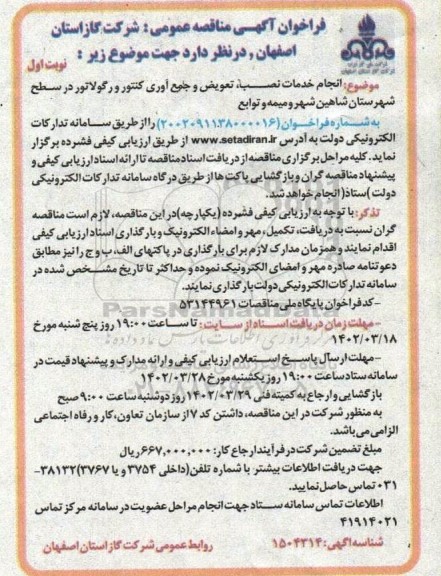 فراخوان آگهی مناقصه عمومی: شرکت گاز استان
اصفهان , در نظر دارد جهت موضوع زیر :
نوبت اول
موضوع: انجام خدمات نصب، تعویض و جمع آوری کنتور و رگولاتور در سطح
شهرستان شاهین شهر و میمه و توابع
به شماره فراخوان (۲۰۰۲۰۹۱۱۳۸۰۰۰۰۱۶) را از طریق سامانه تدارکات
الکترونیکی دولت به آدرس www.setadiran.ir از طریق ارزیابی کیفی فشرده برگزار
نماید. کلیه مراحل برگزاری مناقصه از دریافت اسناد مناقصه تا ارائه اسناد ارزیابی کیفی و
پیشنهاد مناقصه گران و بازگشایی پاکت ها از طریق درگاه سامانه تدارکات الکترونیکی
دولت )ستاد( انجام خواهد شد.
تذکر: با توجه به ارزیابی کیفی فشرده (یکپارچه) در این مناقصه، لازم است مناقصه
گران نسبت به دریافت، تکمیل، مهر و امضاء الکترونیک و بارگذاری اسناد ارزیابی کیفی
اقدام نمایند و همزمان مدارک لازم برای بارگذاری در پاکتهای الف، ب و ج را نیز مطابق
دعوتنامه صادره مهر و امضای الکترونیک نموده و حداکثر تا تاریخ مشخص شده در
سامانه تدارکات الکترونیکی دولت بارگذاری نمایند.
-کد فراخوان پایگاه ملی مناقصات ۵۳۱۴۴۹۶۱
-مهلت زمان دریافت اسناد از سایت: تا ساعت ۱۹:۰۰ روز پنج شنبه مورخ
۱۴۰۲/۰۳/۱۸
-مهلت ارسال پاسخ استعلام ارزیابی کیفی و ارائه مدارک و پیشنهاد قیمت در
سامانه ستاد ساعت ۱۹:۰۰ روز یکشنبه مورخ ۱۴۰۲/۰۳/۲۸
بازگشایی و ارجاع به کمیته فنی ۱۴۰۲/۰۳/۲۹ روز دوشنبه ساعت ۹:۰۰ صبح
به منظور شرکت در این مناقصه، داشتن کد ۷ از سازمان تعاون، کار و رفاه اجتماعی
الزامی می باشد.
مبلغ تضمین شرکت در فرآیند ارجاع کار: ۶۶۷,۰۰۰,۰۰۰ ریال
جهت دریافت اطلاعات بیشتر با شماره تلفن (داخلی ۳۷۵۴ و یا ۳۷۶۷) ۳۸۱۳۲-
۰۳۱ تماس حاصل نمایید.
اطلاعات تماس سامانه ستاد جهت انجام مراحل عضویت در سامانه مرکز تماس
۴۱۹۱۴۰۲۱
شناسه آگهی: ۱۵۰۴۳۱۴
روابط عمومی شرکت گاز استان اصفهان
ParsNamadData